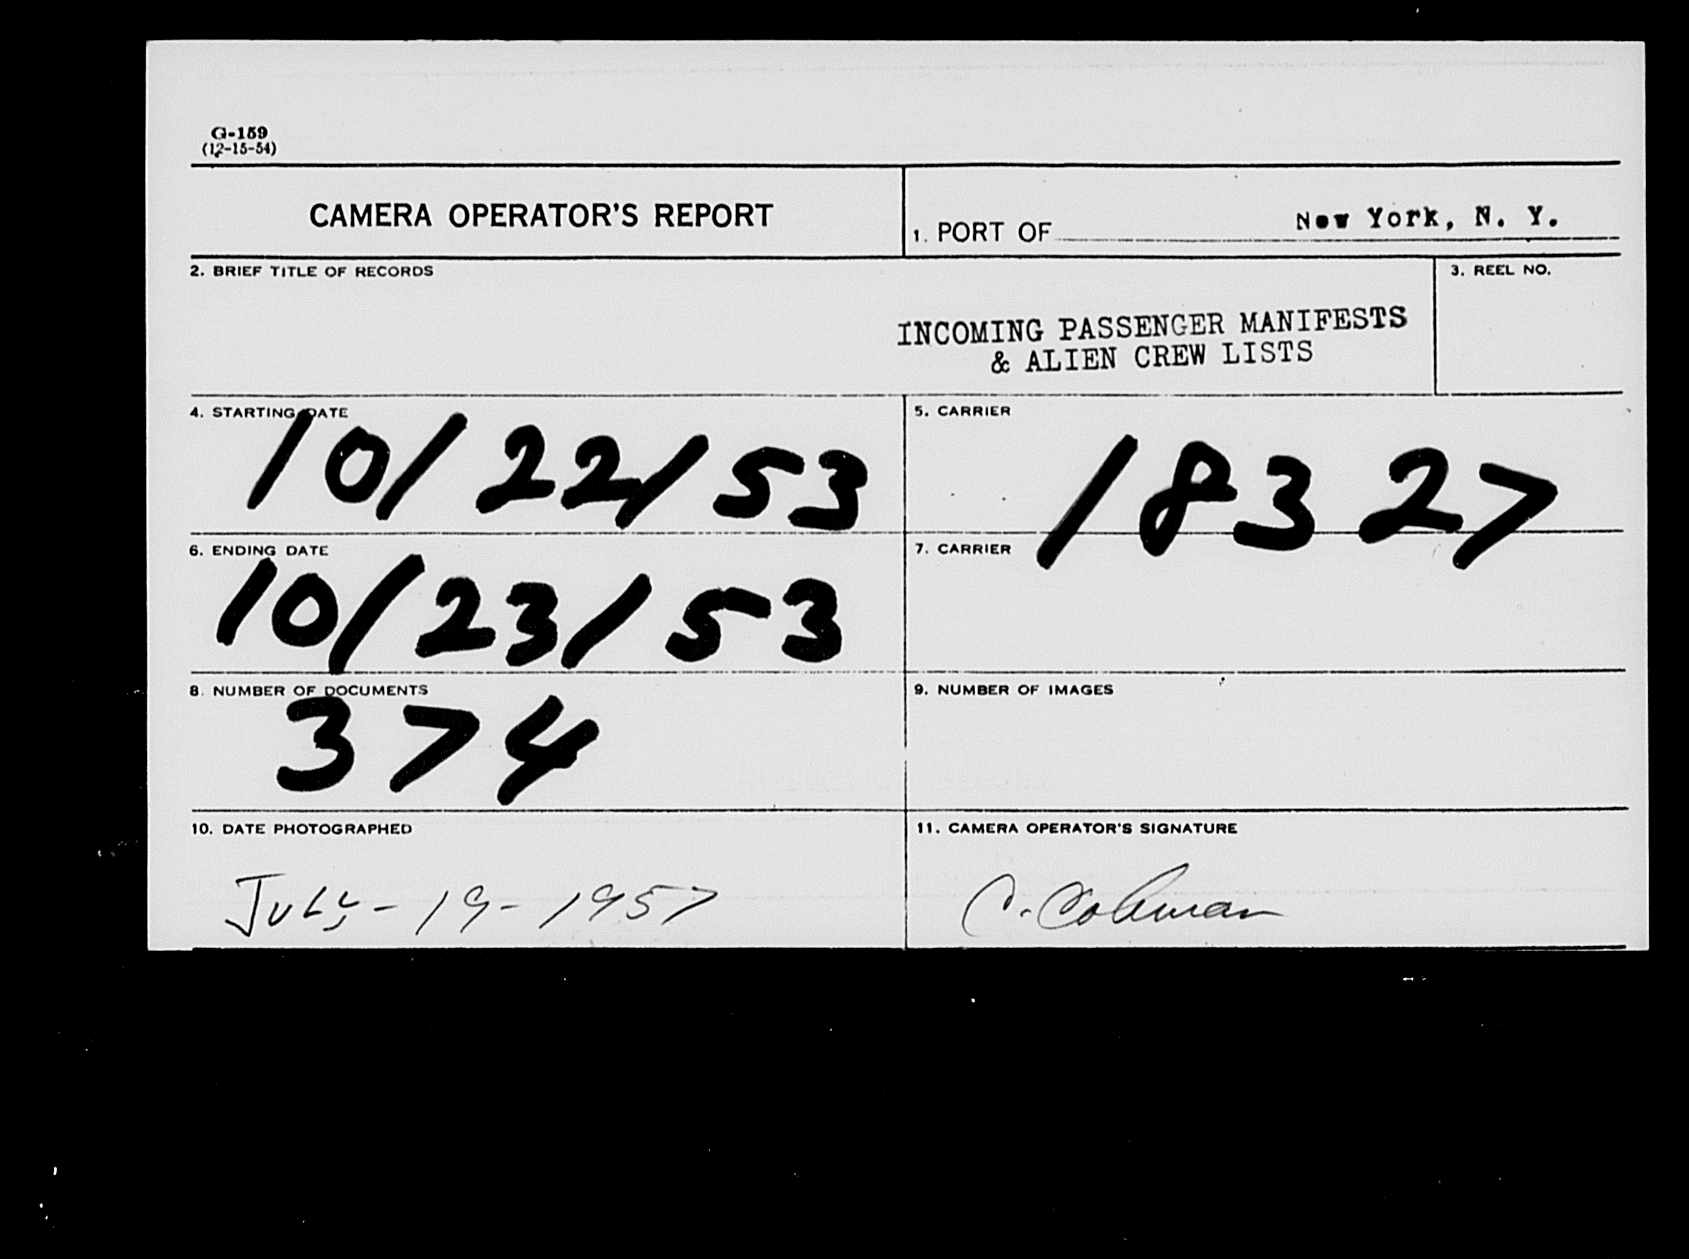 G-159
(12-15-54)
CAMERA OPERATOR'S REPORT
1. PORT OF New York, N. Y.
2. BRIEF TITLE OF RECORDS
INCOMING PASSENGER MANIFESTS
& ALIEN CREW LISTS
3. REEL NO.
4. STARTING DATE
10/22/53
5. CARRIER
18327
6. ENDING DATE
10/23/53
7. CARRIER
8. NUMBER OF DOCUMENTS
374
9. NUMBER OF IMAGES
10. DATE PHOTOGRAPHED
July-19-1957
11. CAMERA OPERATOR'S SIGNATURE
C. Colman